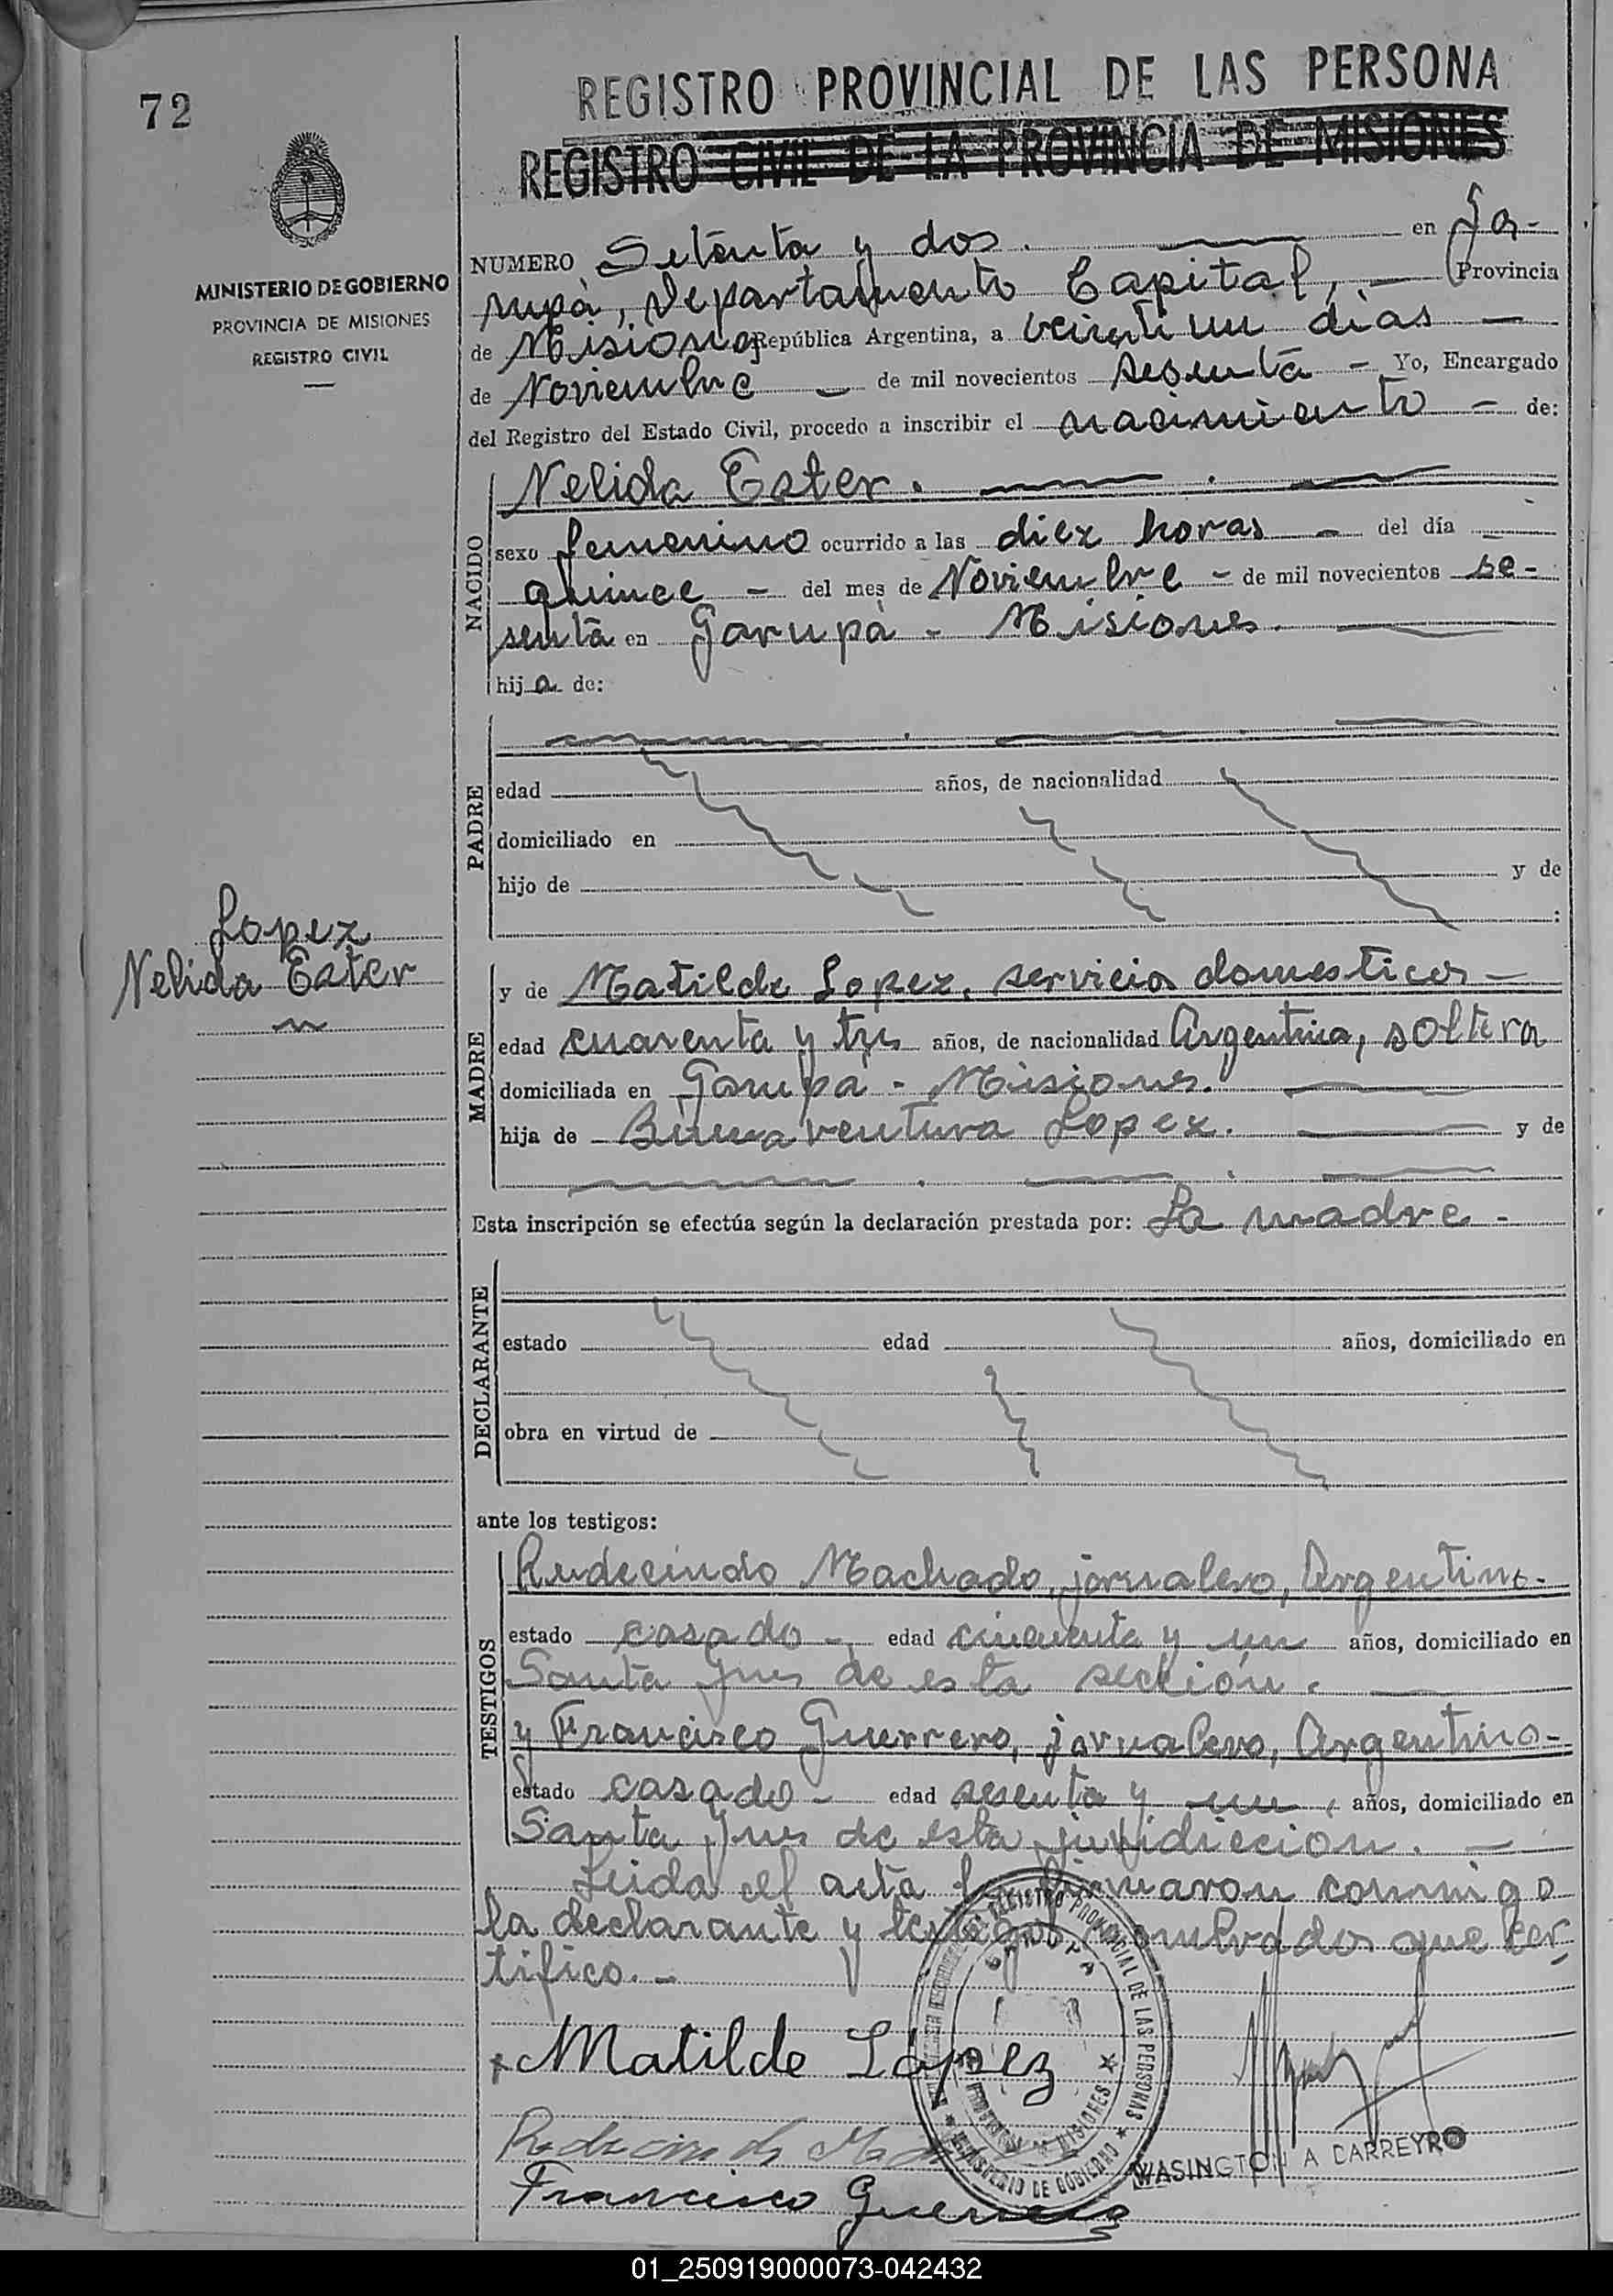 72
REGISTRO PROVINCIAL DE LAS PERSONA
REGISTRO CIVIL DE LA PROVINCIA DE MISIONES
MINISTERIO DE GOBIERNO
PROVINCIA DE MISIONES
REGISTRO CIVIL
NUMERO Setenta y dos. en Ga-
rupá, Departamento Capital, Provincia
de Misiones República Argentina, a veintiun dias
de Noviembre de mil novecientos sesenta - Yo, Encargado
del Registro del Estado Civil, procedo a inscribir el nacimiento - de:
NACIDO
Nelida Ester.
sexo femenino ocurrido a las diez horas - del día
quince - del mes de Noviembre - de mil novecientos se-
senta en Garupá - Misiones.
hija de:
PADRE
edad años, de nacionalidad
domiciliado en
hijo de y de
:
Lopez
Nelida Ester
MADRE
y de Matilde Lopez, servicios domesticos -
edad cuarenta y tres años, de nacionalidad Argentina, soltera
domiciliada en Garupá - Misiones.
hija de Buenaventura Lopez. y de
Esta inscripción se efectúa según la declaración prestada por: La madre -
DECLARANTE
estado edad años, domiciliado en
obra en virtud de
ante los testigos:
TESTIGOS
Rudecindo Machado, jornalero, Argentino-
estado casado - edad cincuenta y un años, domiciliado en
Santa Ines de esta sección.
y Francisco Guerrero, jornalero, Argentino-
estado casado - edad sesenta y un, años, domiciliado en
Santa Ines de esta juridiccion.
Leida el acta la firmaron conmigo
la declarante y testigos nombrados que cer-
tifico. -
REGISTRO PROVINCIAL DE LAS PERSONAS
GARUPA
MISIONES
MINISTERIO DE GOBIERNO
Matilde López
Francisco Guerrero
WASINGTON A CARREYRO
01_250919000073-042432